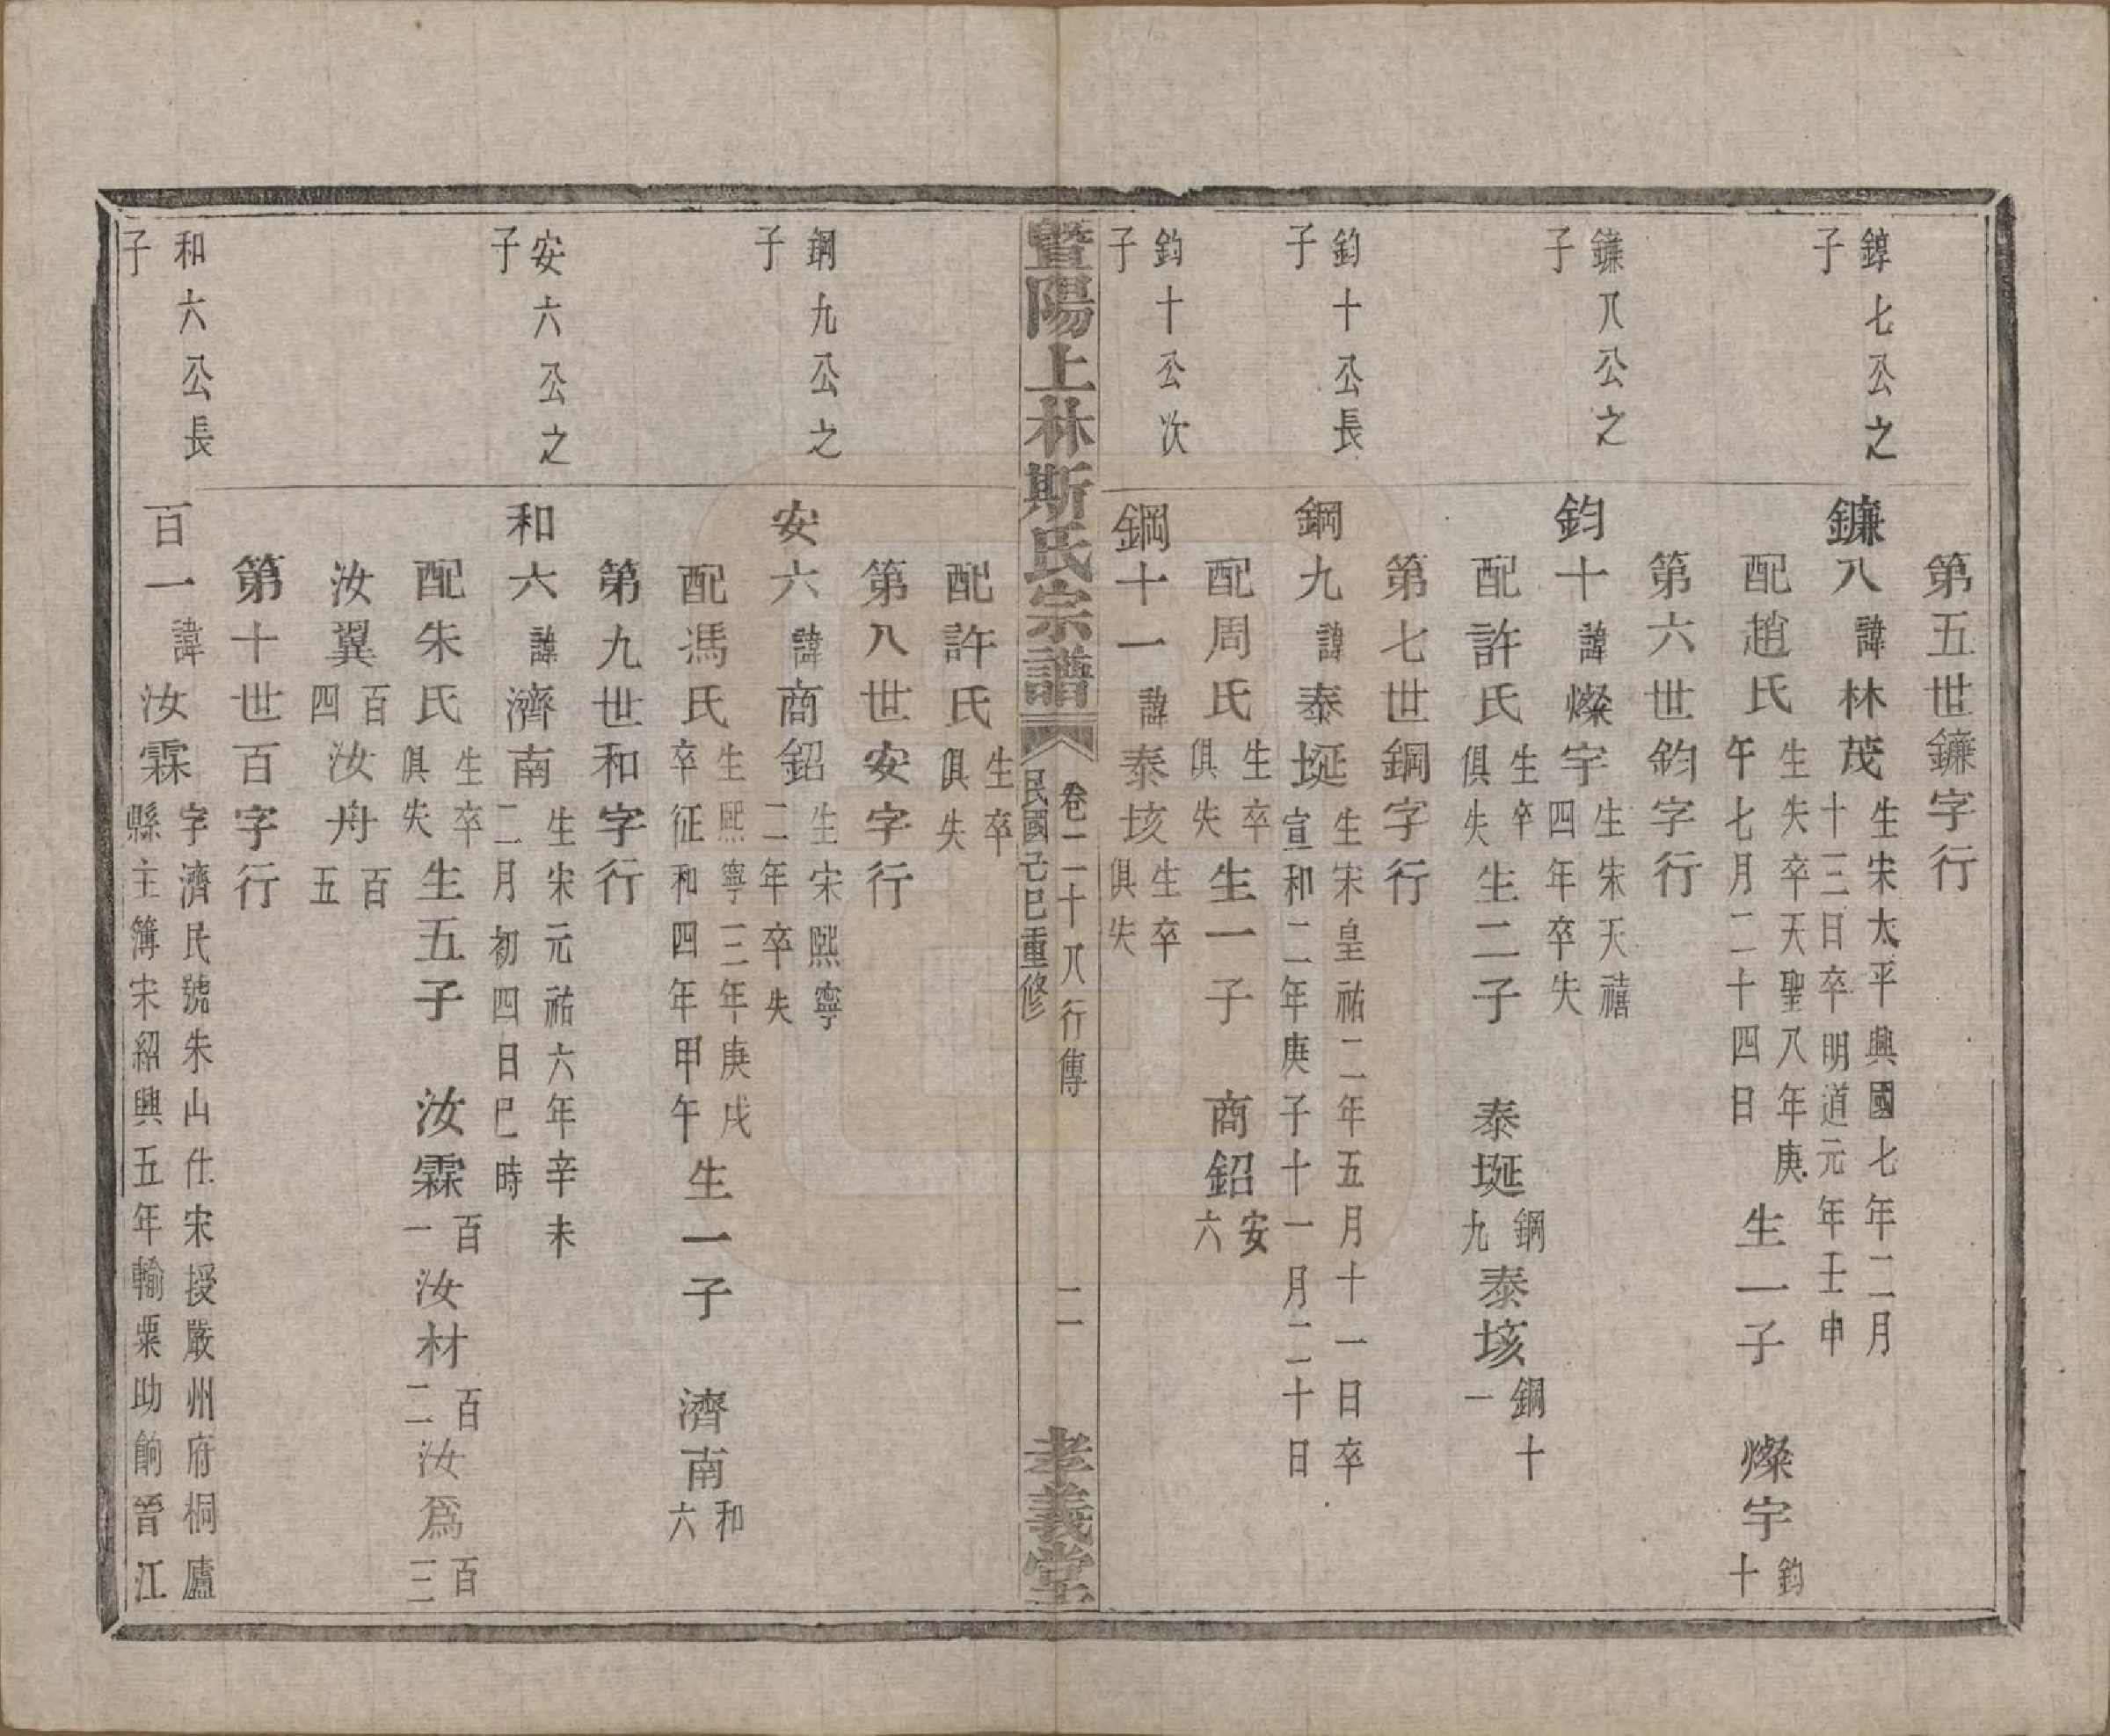 第五世鐮字行
錞七公之子
鐮八諱林茂生宋太平興國七年二月十三日卒明道元年壬申
配趙氏生失卒天聖八年庚午七月二十四日生一子 燦宇鈞十
第六世鈞字行
鐮八公之子
鈞十諱燦宇生朱天禧四年卒失
配許氏生卒俱失生二子 泰埏鋼九泰垓鋼十一
第七世鋼字行
鈞十公長子
鋼九諱泰埏生宋皇祐二年五月十一日卒宣和二年庚子十一月二十日
配周氏生卒俱失生一子 商鉊安六
鈞十公次子
鋼十一諱泰垓生卒俱失
暨陽上林斯氏宗譜 卷二十八行傳 民國己巳重修 二 孝義堂
配許氏生卒俱失
第八世安字行
鋼九公之子
安六諱商鉊生宋熙寧二年卒失
配馮氏生熙寧三年庚戌卒征和四年甲午生一子 濟南和六
第九世和字行
安六公之子
和六諱濟南生宋元祐六年辛未二月初四日巳時
配朱氏生卒俱失生五子 汝霖百一汝材百二汝爲百三
汝翼百四汝舟百五
第十世百字行
和六公長子
百一諱汝霖字濟民號朱山仕宋授嚴州府桐廬縣主簿宋紹興五年輸粟助餉晉江